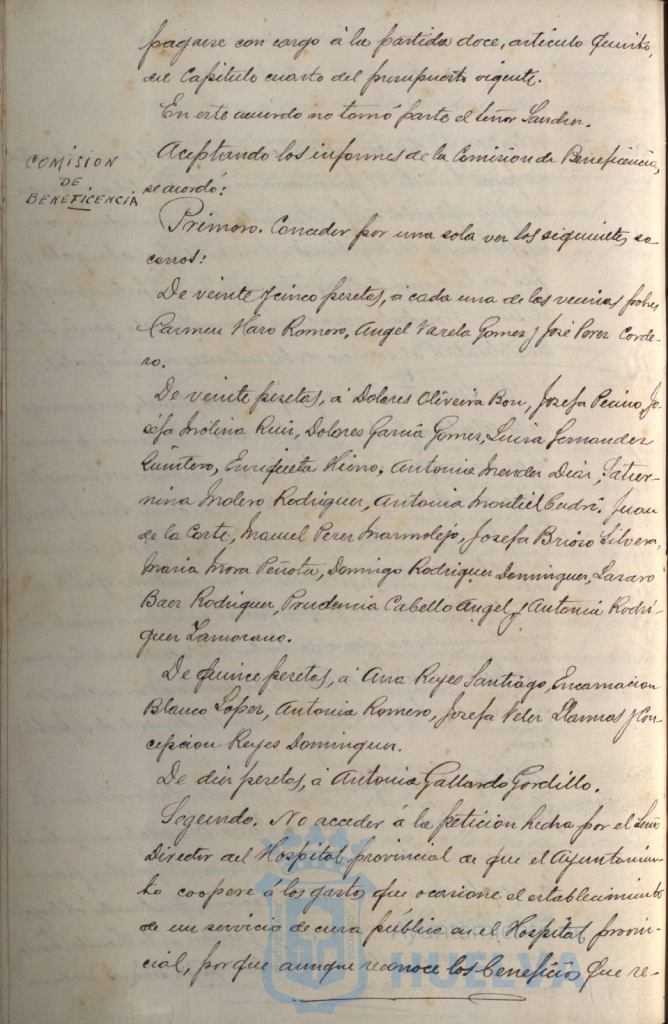 pagarse con cargo á la partida doce, artículo quinto,
del Capítulo cuarto del presupuesto vigente.
En este acuerdo no tomó parte el Señor
Aceptando los informes de la Comisión de Beneficencia,
COMISION
DE
BENEFICENCIA
se acordó:
Primero. Conceder por una sola vez los siguientes so-
corros:
De veinte y cinco pesetas, á cada una de los vecinos pobres
Carmen Haro Romero, Angel Varela Gomez y José Perez Corde-
ro.
De veinte pesetas, á Dolores Oliveira Bon, Josefa Pecino, Jo-
sefa Molina Ruiz, Dolores Garcia Gomez, Luisa Fernandez
Quintero, Enriqueta Hierro, Antonia Mendez Diaz, Satur-
nina Molero Rodriguez, Antonia Montiel Juan
de la Corte, Manuel Perez Marmolejo, Josefa Brioso Silvera,
Maria Mora Peñota, Domingo Rodriguez Dominguez, Lazaro
Baez Rodriguez, Prudencia Cabello Angel y Antonia Rodri-
guez Zamorano.
De quince pesetas, á Ana Reyes Santiago, Encarnacion
Blanco Lopez, Antonia Romero, Josefa Velez Llamas y Con-
cepcion Reyes Dominguez.
De diez pesetas, á Antonia Gallardo Gordillo.
Segundo. No acceder á la peticion hecha por el Señor
Director del Hospital provincial de que el Ayuntamien-
to coopere á los gastos que ocasione el establecimiento
de un servicio de cura pública en el Hospital provin-
cial, porque aunque reconoce los beneficios que re-
Ayuntamiento
HUELVA